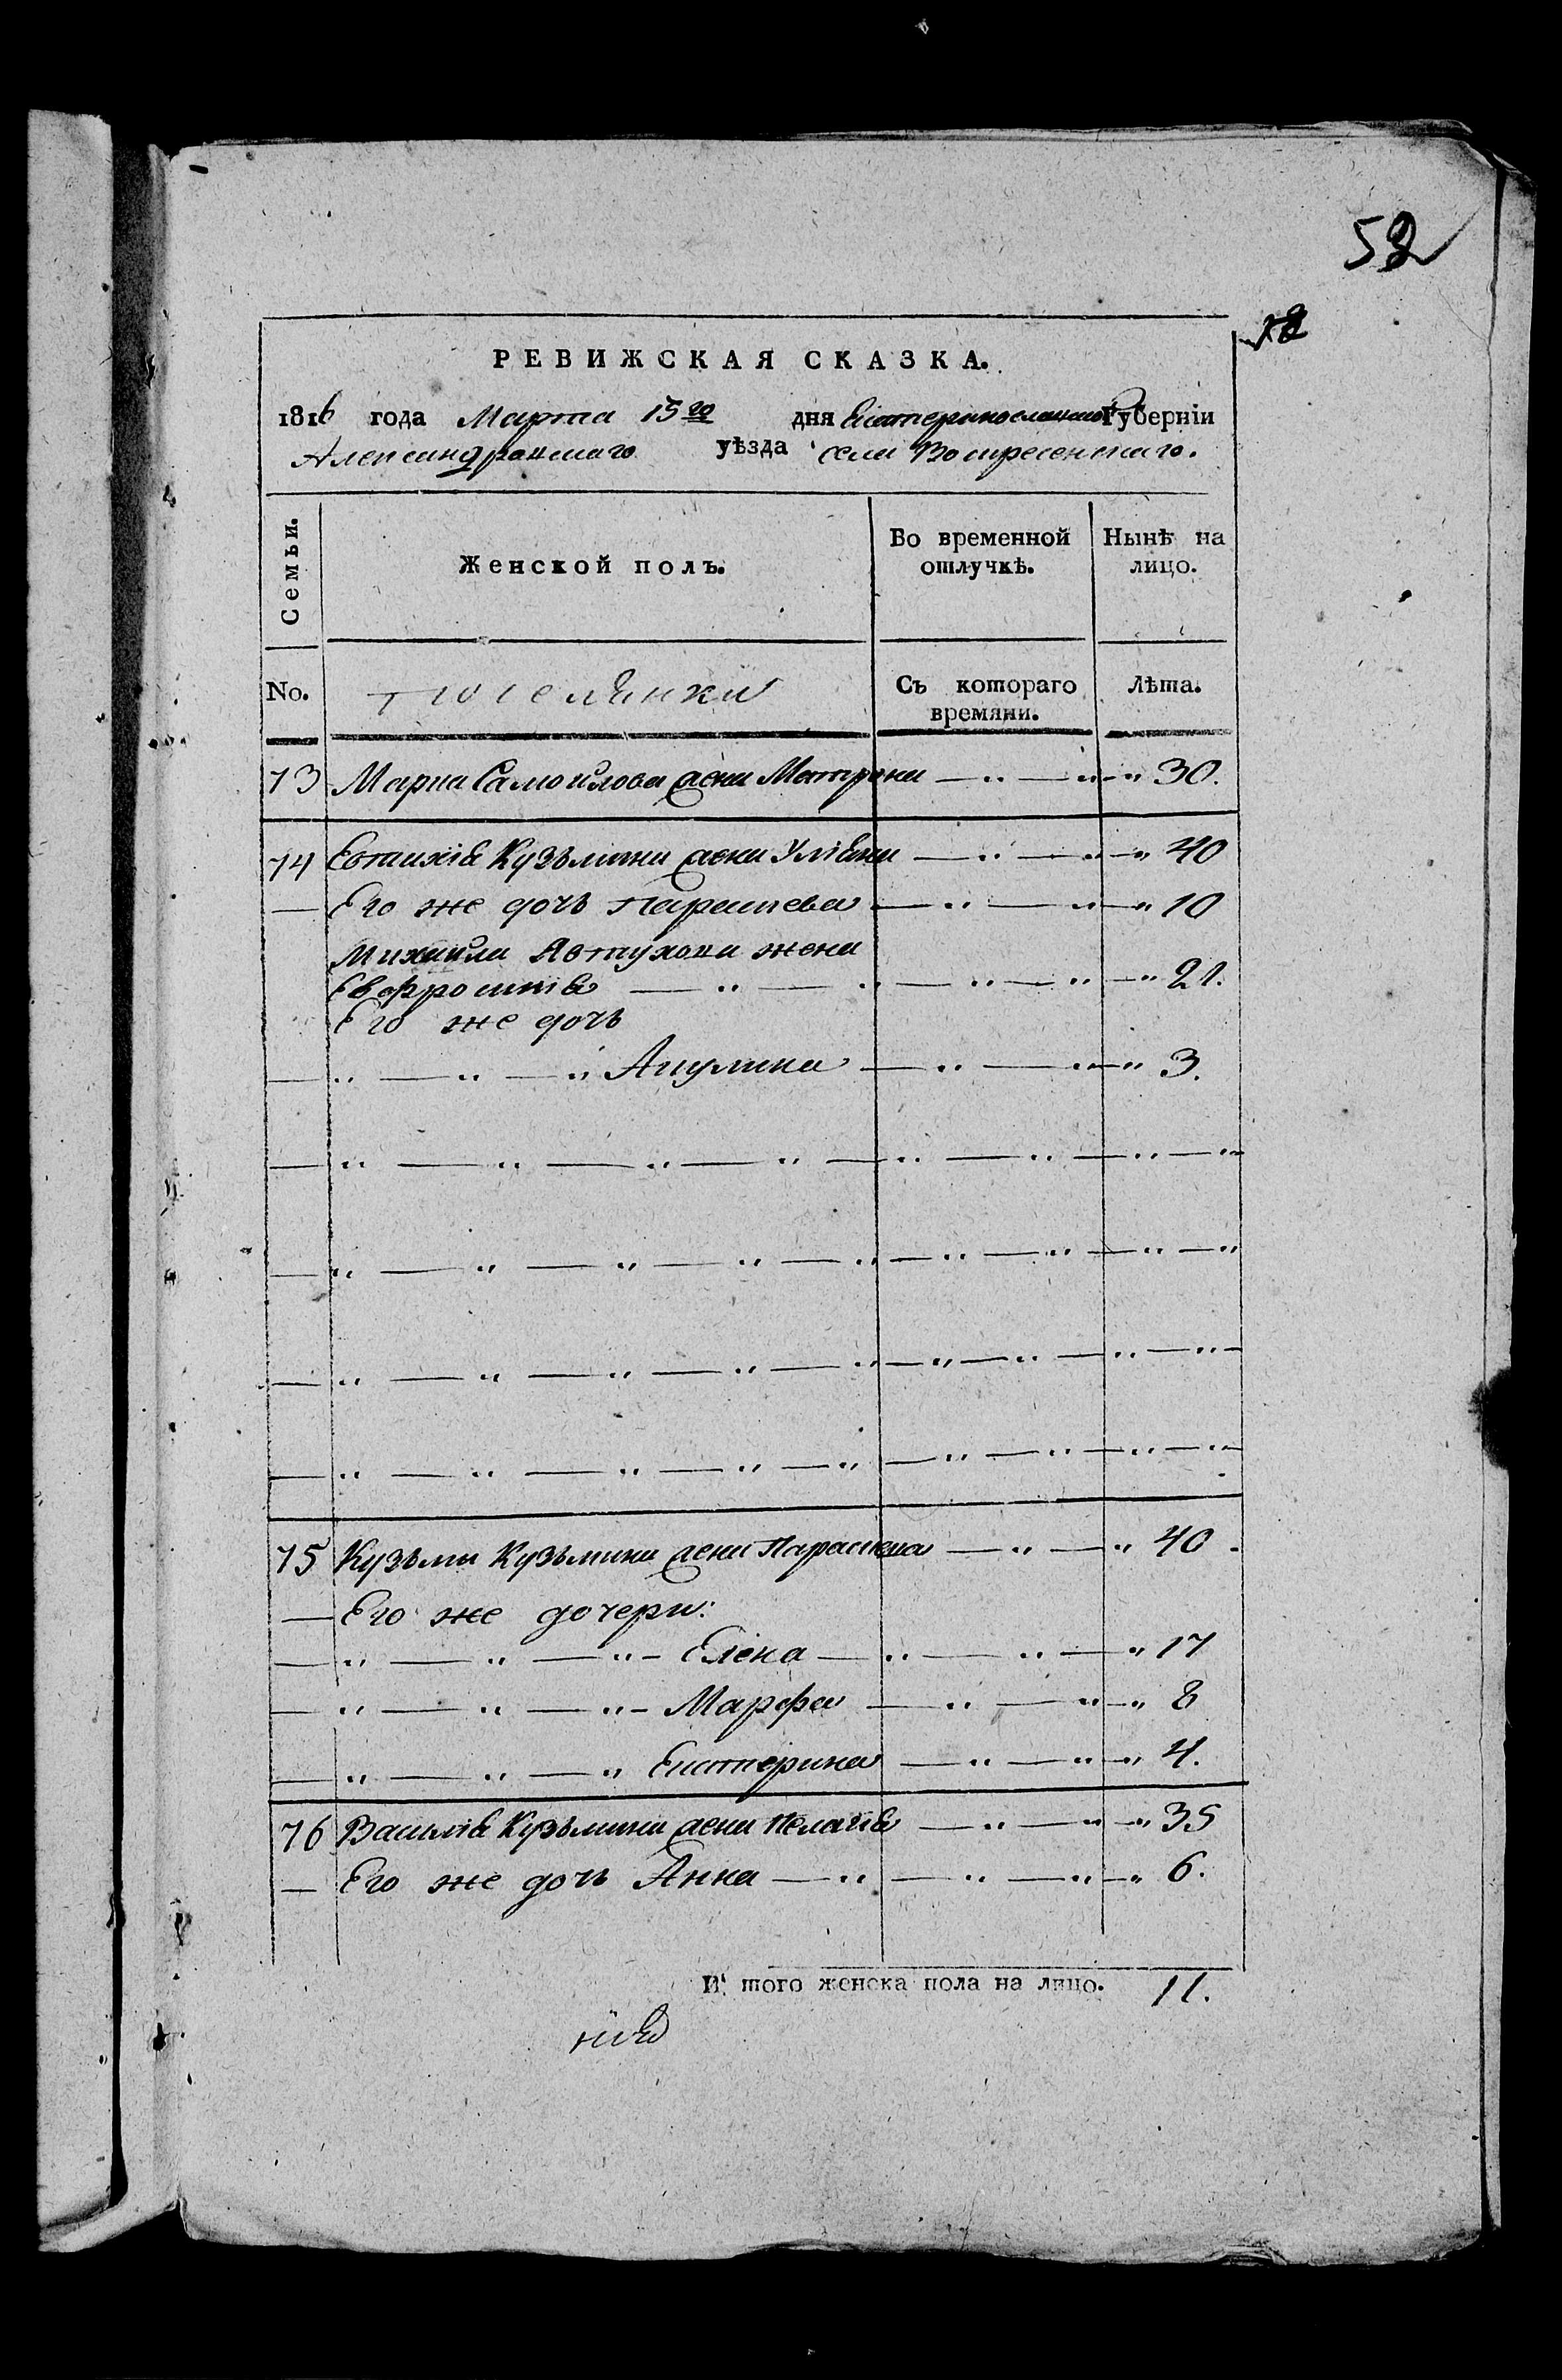 52
РЕВИЖСКАЯ СКАЗКА.
1816 года Марта 15го дня Екатеринославской Губерніи
Александровскаго уѣзда села Воскресенскаго.
Семьи.
Женской полъ.
Во временной отлучкѣ.
Нынѣ на лицо.
No.
поселянки
Съ котораго времяни.
Лѣта.
73 Марка Самойлова жена Матрона — " — " — " 30.
74 Евтихія Кузьмина жена Уліяна — " — " — " 40
— Его же дочь Параскева — " — " — " 10
Михаила Автухова жена
Евфросинія — " — " — " — " — " 21.
Его же дочь
— " — " — " Акулина — " — " — " 3.
— " — " — " — " — " — " — " — "
— " — " — " — " — " — " — " — " — "
— " — " — " — " — " — " — " — " — " —
— " — " — " — " — " — " — " — " — "
75 Кузьмы Кузьмина жена Параскева — " — " 40.
— Его же дочери:
— " — " — " — Елена — " — " — " 17
— " — " — " — Марфа — " — " — " 8
— " — " — " Екатерина — " — " — " 4.
76 Василія Кузьмина жена Пелагія — " — " — " 35
— Его же дочь Анна — " — " — " — " 6.
И того женска пола на лицо. 11.